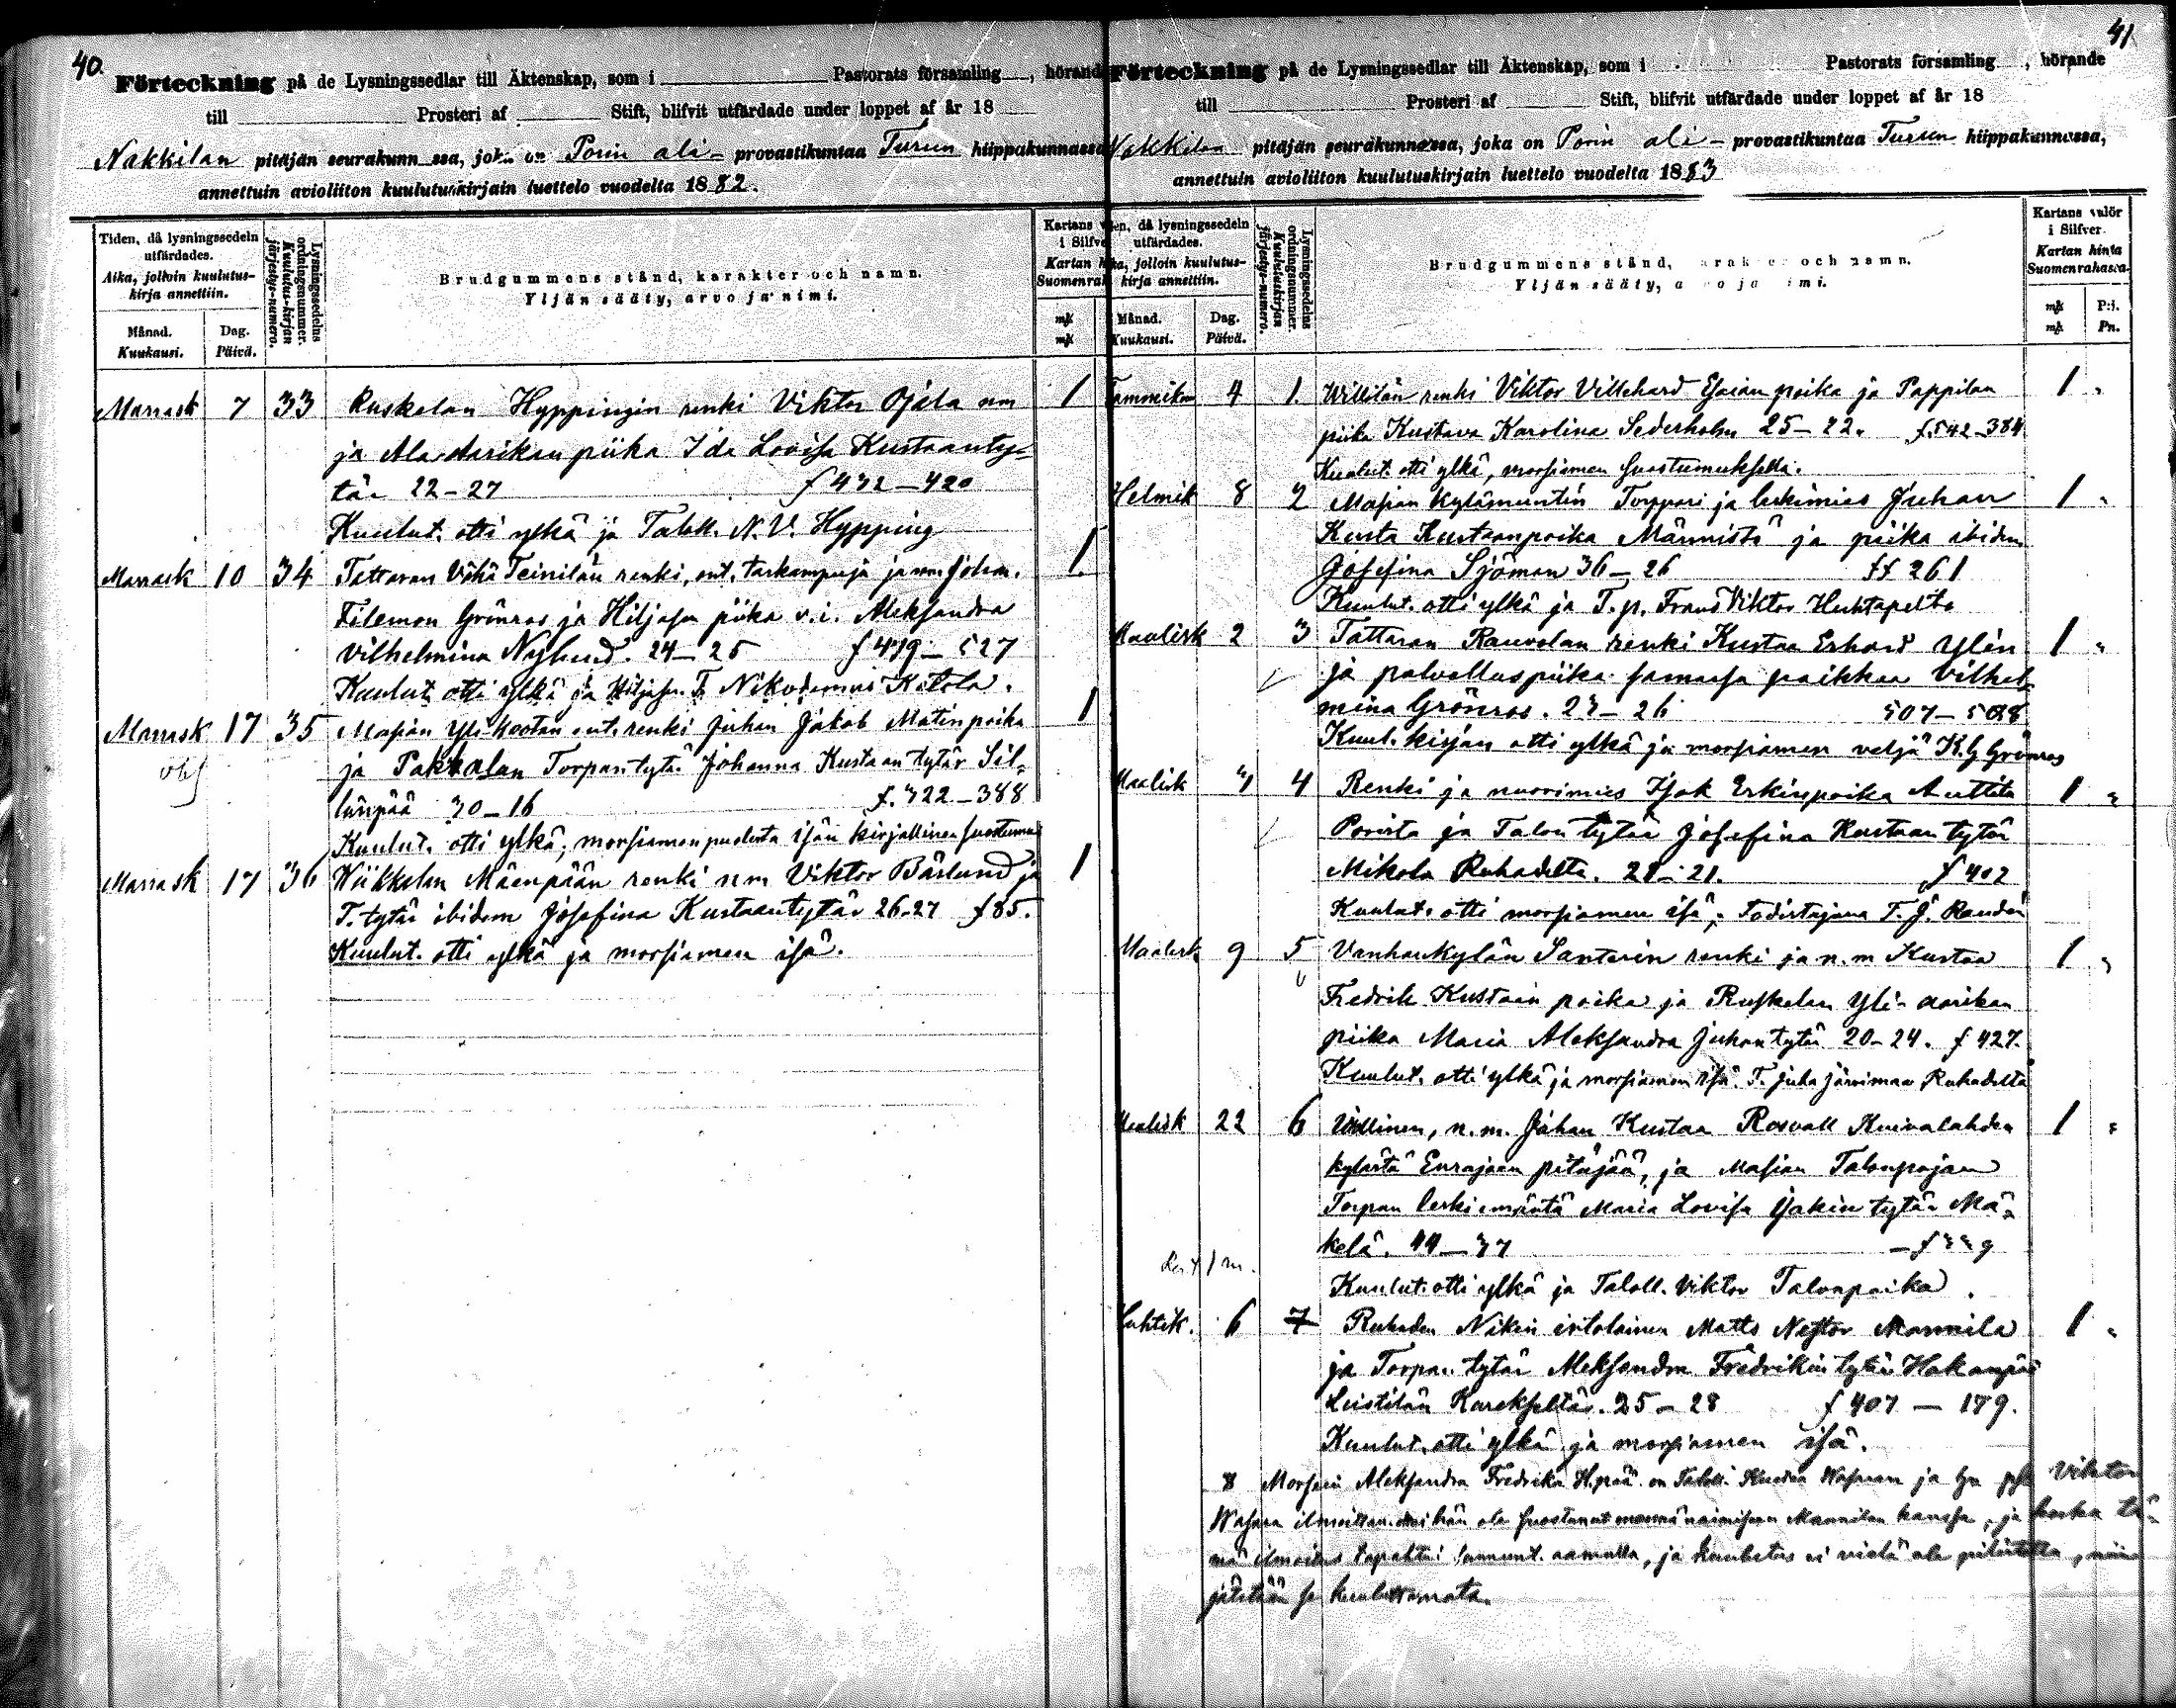 40.
Förteckning på de Lysningssedlar till Äktenskap, som i Pastorats församling, hörande
till Prosteri af Stift, blifvit utfärdade under loppet af år 18
Nakkilan pitäjän seurakunnassa, joka on Porin ali- provastikuntaa Turun hiippakunnassa
annettuin avioliiton kuulutuskirjain luettelo vuodelta 1882.
Tiden, då lysningssedeln utfärdades.
Aika, jolloin kuulutus-kirja annettiin.
Månad. Kuukausi.
Dag. Päivä.
Lysningssedelns ordningsnummer.
Kuulutus-kirjan järjestys-numero.
Brudgummens stånd, karakter och namn.
Yljän sääty, arvo ja nimi.
Marrask 7 33 Ruskelan Hyppingin renki Viktor Ojala nm 1
ja Ala Aarikan piika Ida Lovisa Kustaanty-
tär 22-27 f 432-420
Kuulut. otti ylkä ja Talok. N. V. Hypping
Marrask 10 34 Tattaran Vähä Teinilän renki, ent. tarkampuja ja nm Johan. 1
Filemon Grönros ja Hiljasen piika v.i. Aleksandra
Vilhelmina Nylund. 24-25 f 419-527
Kuulut. otti ylkä ja Hiljasen T. Nikodemus Kitola.
Marrask 17 35 Masian Yli Kootan ent. renki Juhan Jakob Matinpoika 1
ja Pakkalan Torpantytär Johanna Kustaantytär Sil-
länpää 30-16 f. 322-388
Kuulut. otti ylkä; morsiamen puolesta isän kirjallinen suostumus
Marrask 17 36 Wiikkalan Mäenpään renki nm Viktor Bärlund ja 1
T. tytär ibidem Josefina Kustaantytär 26-27 f 85.
Kuulut. otti ylkä ja morsiamen isä.
41
Förteckning på de Lysningssedlar till Äktenskap, som i Pastorats församling, hörande
till Prosteri af Stift, blifvit utfärdade under loppet af år 18
Nakkilan pitäjän seurakunnassa, joka on Porin ali- provastikuntaa Turun hiippakunnassa,
annettuin avioliiton kuulutuskirjain luettelo vuodelta 1883
då lysningssedeln utfärdades.
jolloin kuulutus-kirja annettiin.
Månad. Kuukausi.
Dag. Päivä.
Lysningssedelns ordningsnummer.
Kuulutuskirjan järjestys-numero.
Brudgummens stånd, och namn.
Yljän sääty,
Kartans valör i Silfver.
Kartan hinta Suomen rahassa.
Tammikuu 4 1. Willilän renki Viktor Villehard Esaian poika ja Pappilan 1 "
piika Kustava Karolina Sederholm 25-22. f. 542-384
Kuulut. otti ylkä, morsiamen suostumuksella.
Helmik 8 2 Masian Kylämuntin Torppari ja leskimies Juhan 1 "
Kusta Kustaanpoika Männistö ja piika ibidem
Josefina Sjöman 36-26 ff 261
Kuulut. otti ylkä ja T.p. Frans Viktor Huhtapelto
Maalisk 2 3 Tattaran Rauvolan renki Kustaa Erhard Ylin 1 "
ja palvelluspiika samassa paikkaa Vilhel-
mina Grönros. 23-26 507-508
Kuul. kirjan otti ylkä ja morsiamen veljä K. G Grönros
Maalisk 3 4 Renki ja nuorimies Isak Erkinpoika Anttila 1 "
Porista ja Talon tytär Josefina Kustaan tytär
Mikola Ruhadelta. 28-21. f 402
Kuulut. otti morsiamen isä,
Maalisk 9 5 Vanhankylän Santerin renki ja n.m Kustaa 1 "
Fredrik Kustaan poika ja Ruskelan Yli-aarikan
piika Maria Aleksandra Juhantytär 20-24. f 427.
Kuulut. otti ylkä ja morsiamen isä T. Juha Järvimaa Ruhadelta
Maalisk 22 6 Itsellinen, n.m. Johan Kustaa Rosvall Kuivalahden 1 "
kylästä Eurajoen pitäjää, ja Masian Talonpojan
Torpan leskiemäntä Maria Lovisa Isakin tytär Mä-
kelä. 44-37
Kuulut. otti ylkä ja Taloll. Viktor Talonpoika.
Huhtik. 6 7 Ruhaden Nikin irtolainen Matts Nestor Mannila 1 "
ja Torpan tytär Aleksandra Fredrikin tytär Hakanpää
Leistilän Karekseltä. 25-28 f 407-179.
Kuulut. otti ylkä ja morsiamen isä.
8 Morsian Aleksandra Fredrika H.pää on Taloll. ja Viktor
ilmoittanut hän ole suostunut menemä naimiseen Mannilan kanssa, ja koska tä-
mä ilmoitus tapahtui aamulla, ja kuulutus ei vielä ole
jätetään se kuuluttamata.